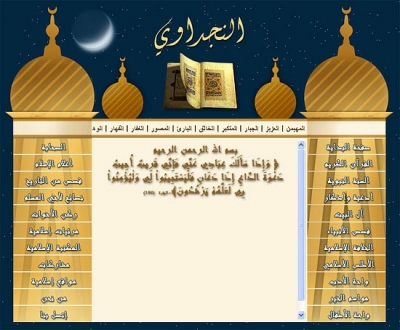 النجداوي
المهيمن | العزيز | الجبار | المتكبر | الخالق | البارئ | المصور | الغفار | القهار | الوه
صفحة البداية
القرآن الكريم
السنة النبوية
أدعية وأذكار
آل البيت
قصص الأنبياء
الخلافة الإسلامية
الأطلس الإسلامي
واحة الأدب
مواسم الخير
واحة الأطفال
بسم الله الرحمن الرحيم
﴿ وَإِذَا سَأَلَكَ عِبَادِي عَنِّي فَإِنِّي قَرِيبٌ أُجِيبُ
دَعْوَةَ الدَّاعِ إِذَا دَعَانِ فَلْيَسْتَجِيبُوا لِي وَلْيُؤْمِنُوا
بِي لَعَلَّهُمْ يَرْشُدُونَ ﴾
الصحابة
أعلام الإسلام
قصص من التاريخ
نصائح لأختي المسلمة
ركن الأخوات
مرئيات إسلامية
المكتبة الإسلامية
مشاركات
مواقع إسلامية
من نحن
إتصل بنا